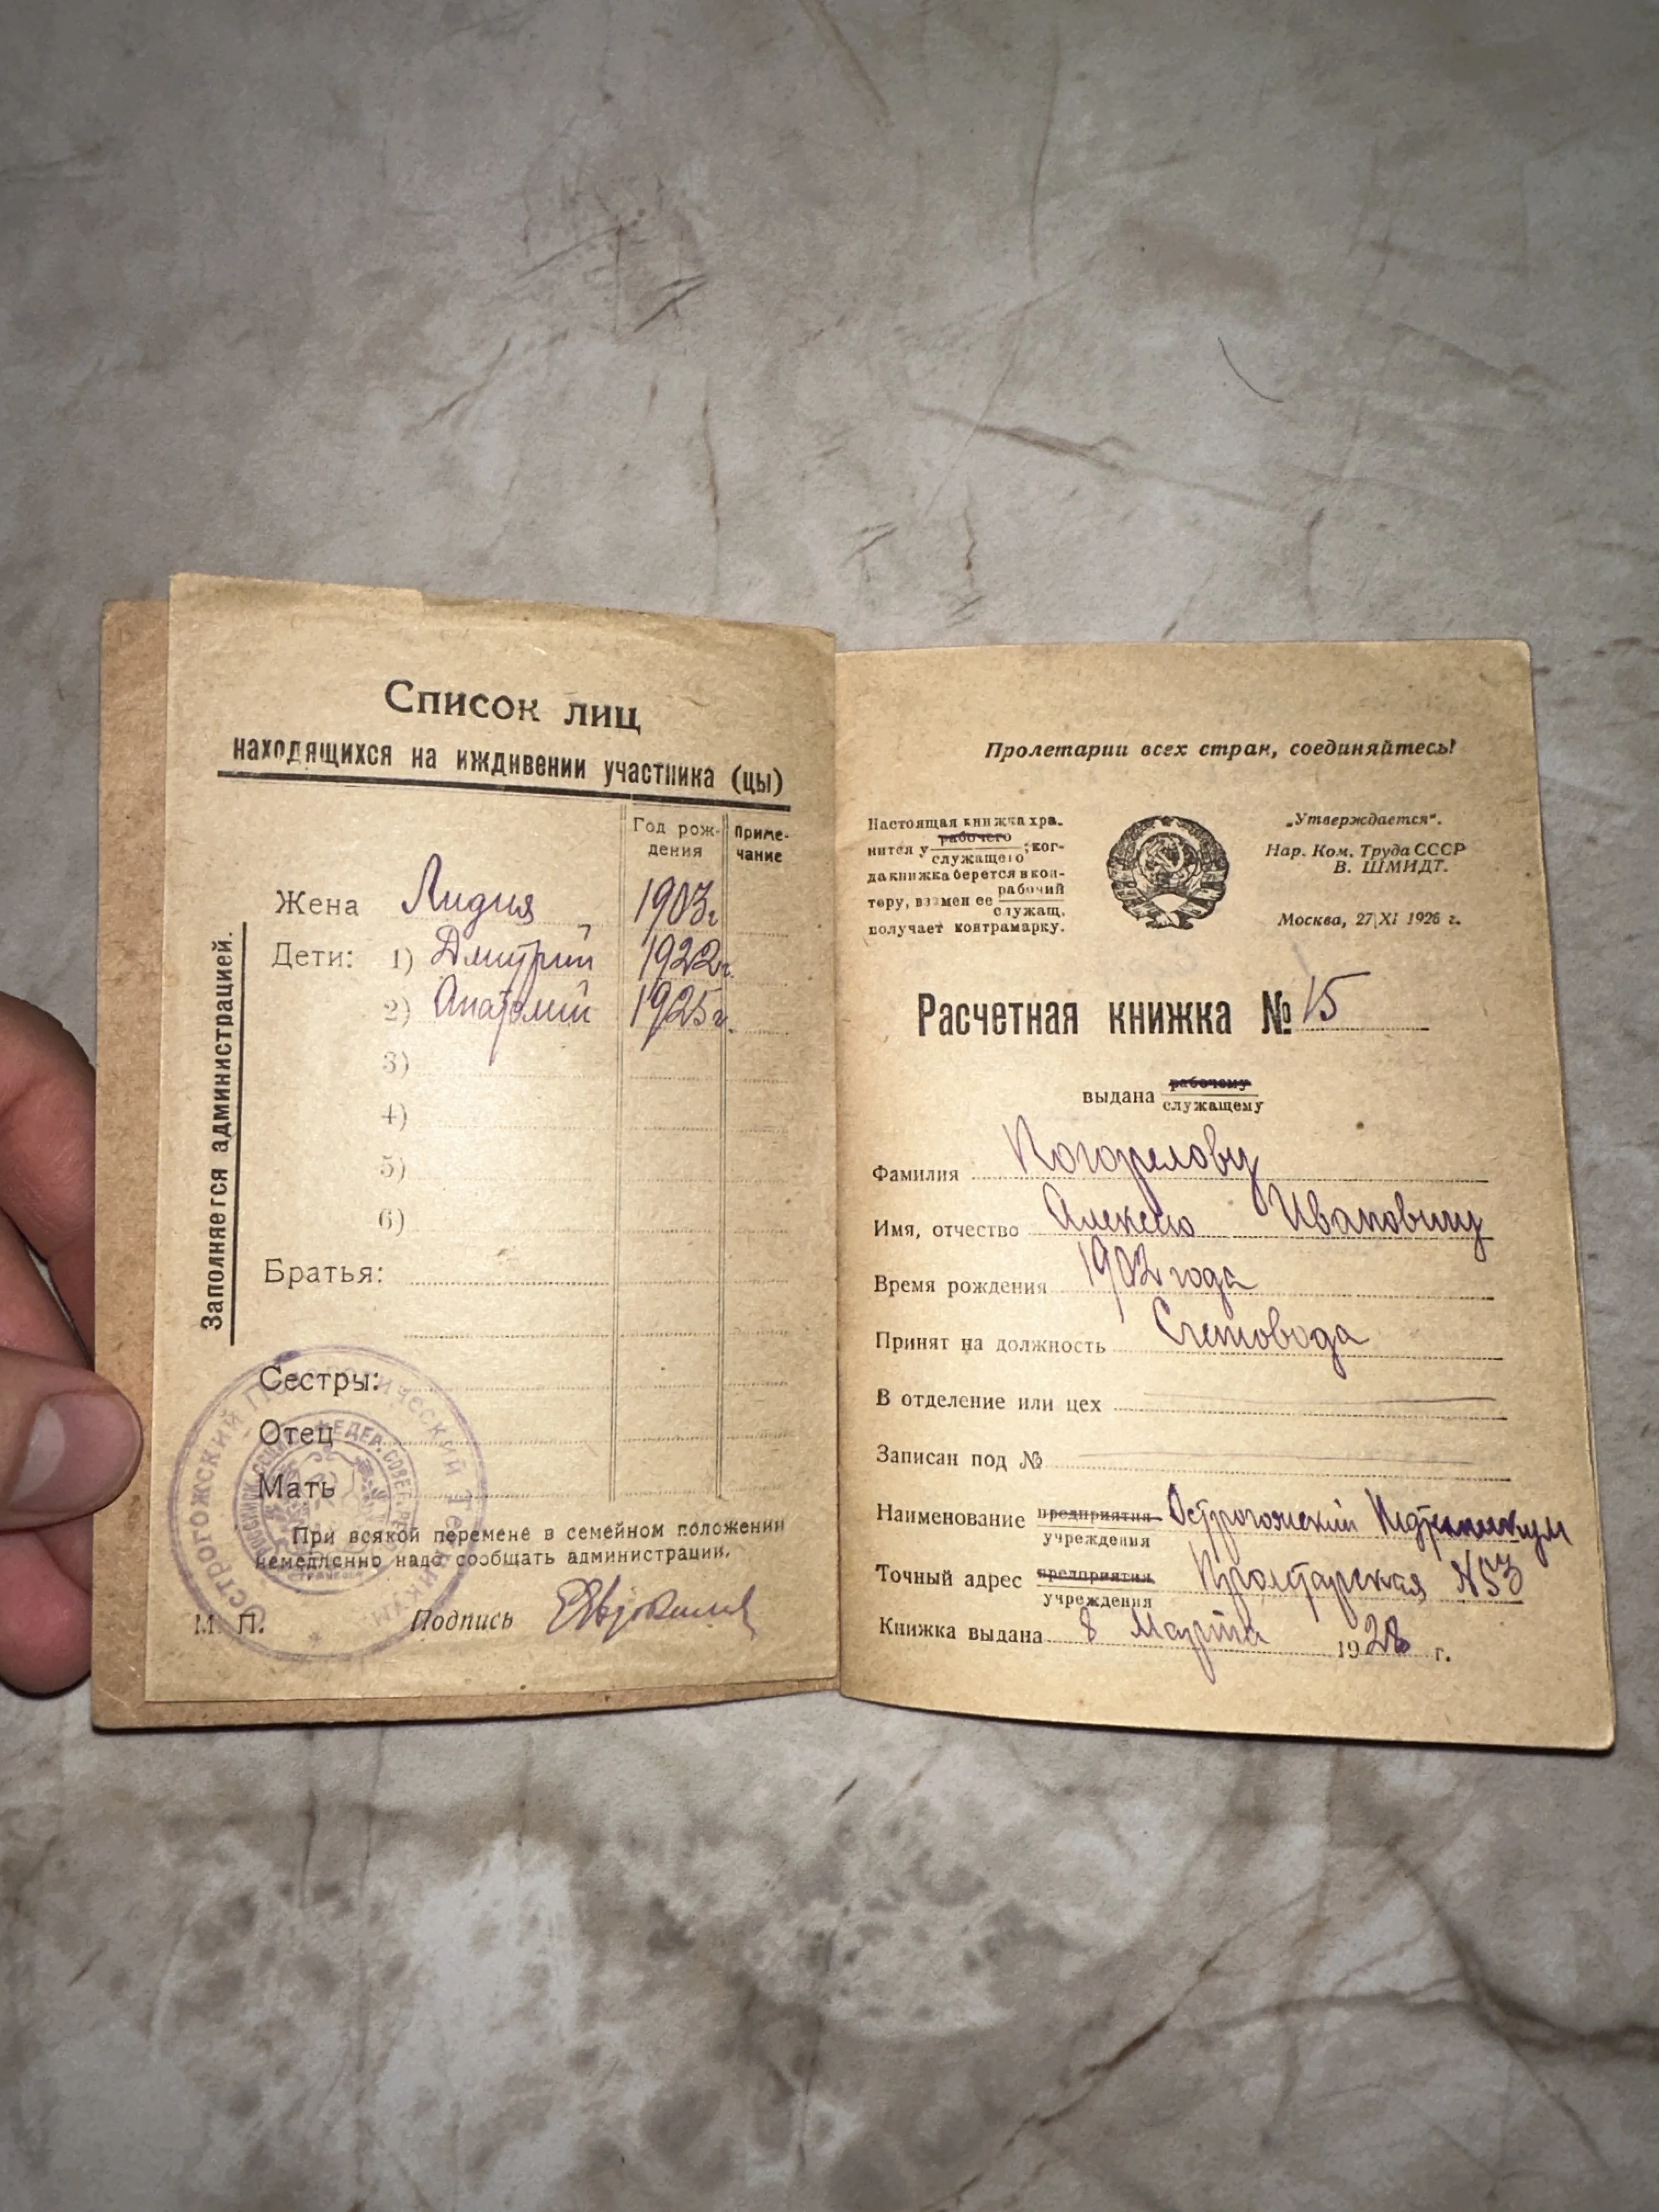 Список лиц
находящихся на иждивении участника (цы)
Год рож-
дения
Приме-
чание
Жена Лидия 1903г
Дети: 1) Дмитрий 1922г.
2) Анатолий 1925г.
3)
4)
5)
6)
Братья:
Сестры:
Отец
Мать
Заполняется администрацией.
При всякой перемене в семейном положении
немедленно надо сообщать администрации.
М. П. Подпись
ОСТРОГОЖСКИЙ ПЕДАГОГИЧЕСКИЙ ТЕХНИКУМ
Пролетарии всех стран, соединяйтесь!
Настоящая книжка хра-
рабочего
нится у ; ког-
служащего
да книжка берется в кон-
рабочий
тору, взамен ее
служащ.
получает контрамарку.
„Утверждается".
Нар. Ком. Труда СССР
В. ШМИДТ.
Москва, 27|XI 1926 г.
Расчетная книжка № 15
рабочему
выдана
служащему
Фамилия Погорелову
Имя, отчество Алексею Ивановичу
Время рождения 1902 года
Принят на должность Счетовода
В отделение или цех
Записан под №
Наименование предприятия Острогожский Педтехникум
учреждения
Точный адрес предприятия Пролетарская №53
учреждения
Книжка выдана 8 Марта 1928 г.